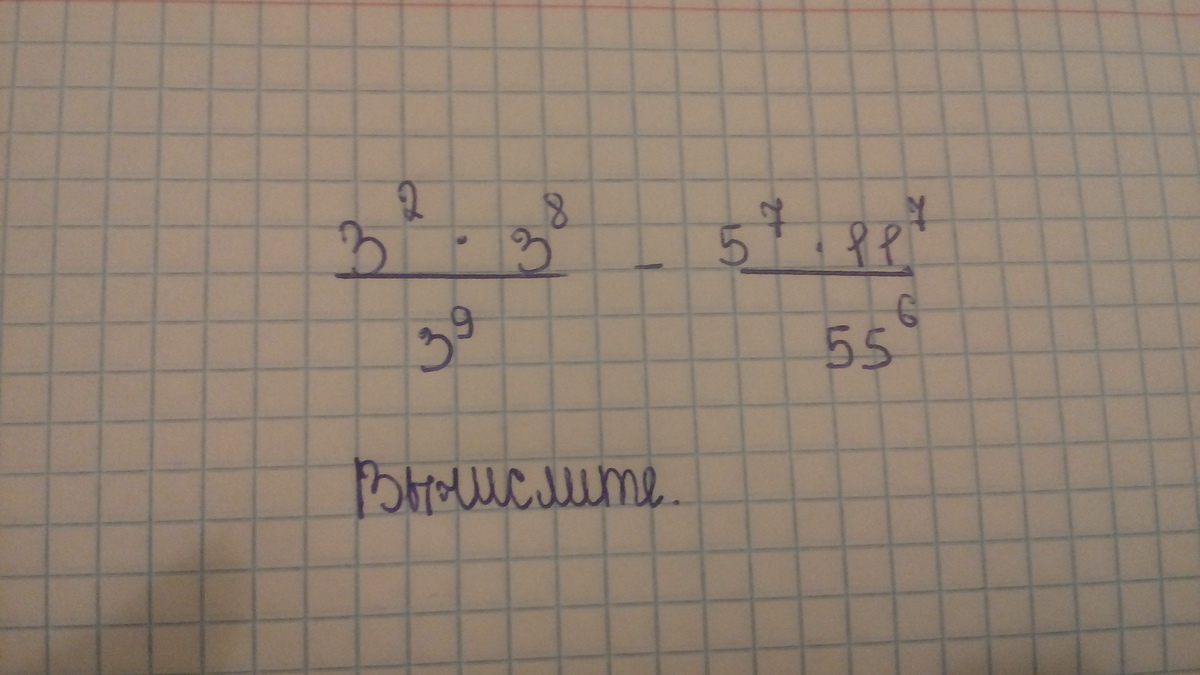 3² · 3⁸ / 3⁹ - 5⁷ · 11⁷ / 55⁶
Вычислите.